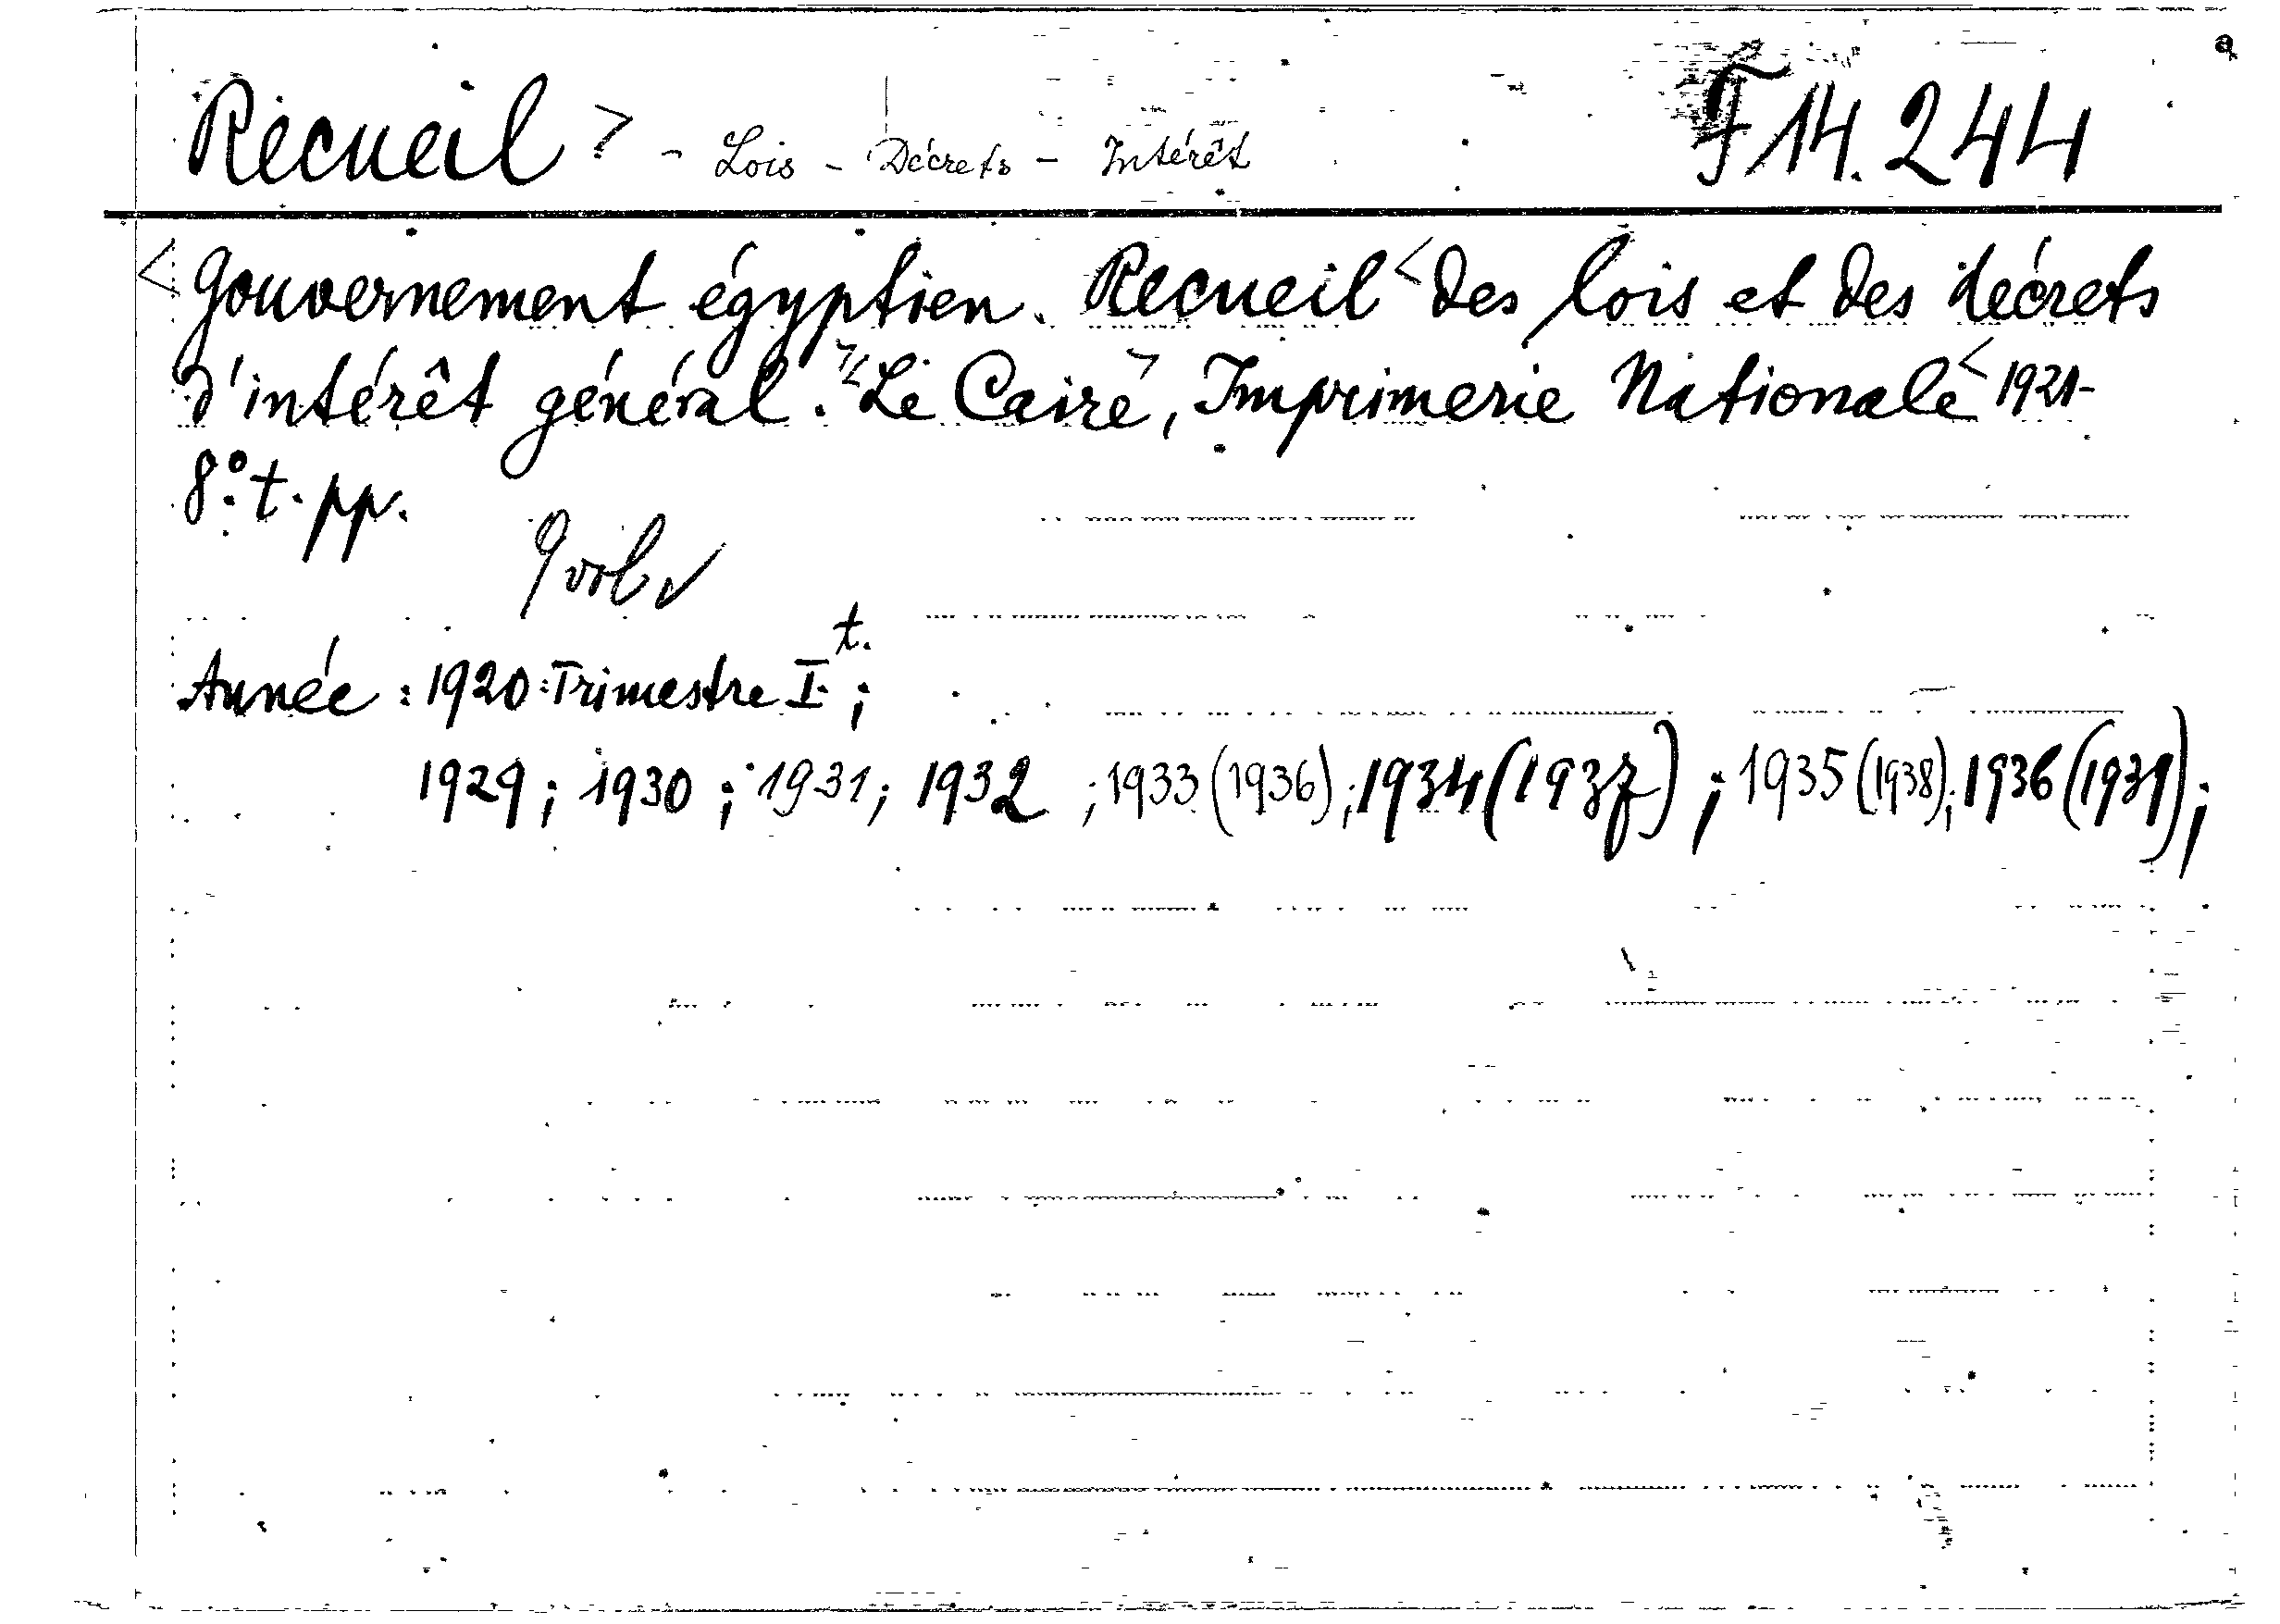 a
Recueil > - Lois - Décrets - Intérêt F 14.244
< Gouvernement égyptien. Recueil < des lois et des décrets
d'intérêt général. > < Le Caire >, Imprimerie Nationale < 1921-
8°. t. pp.
9 vol. ✓
Année : 1920 : Trimestre I t. ;
1929 ; 1930 ; 1931 ; 1932 ; 1933 (1936) ; 1934 (1937) ; 1935 (1938) ; 1936 (1939) ;